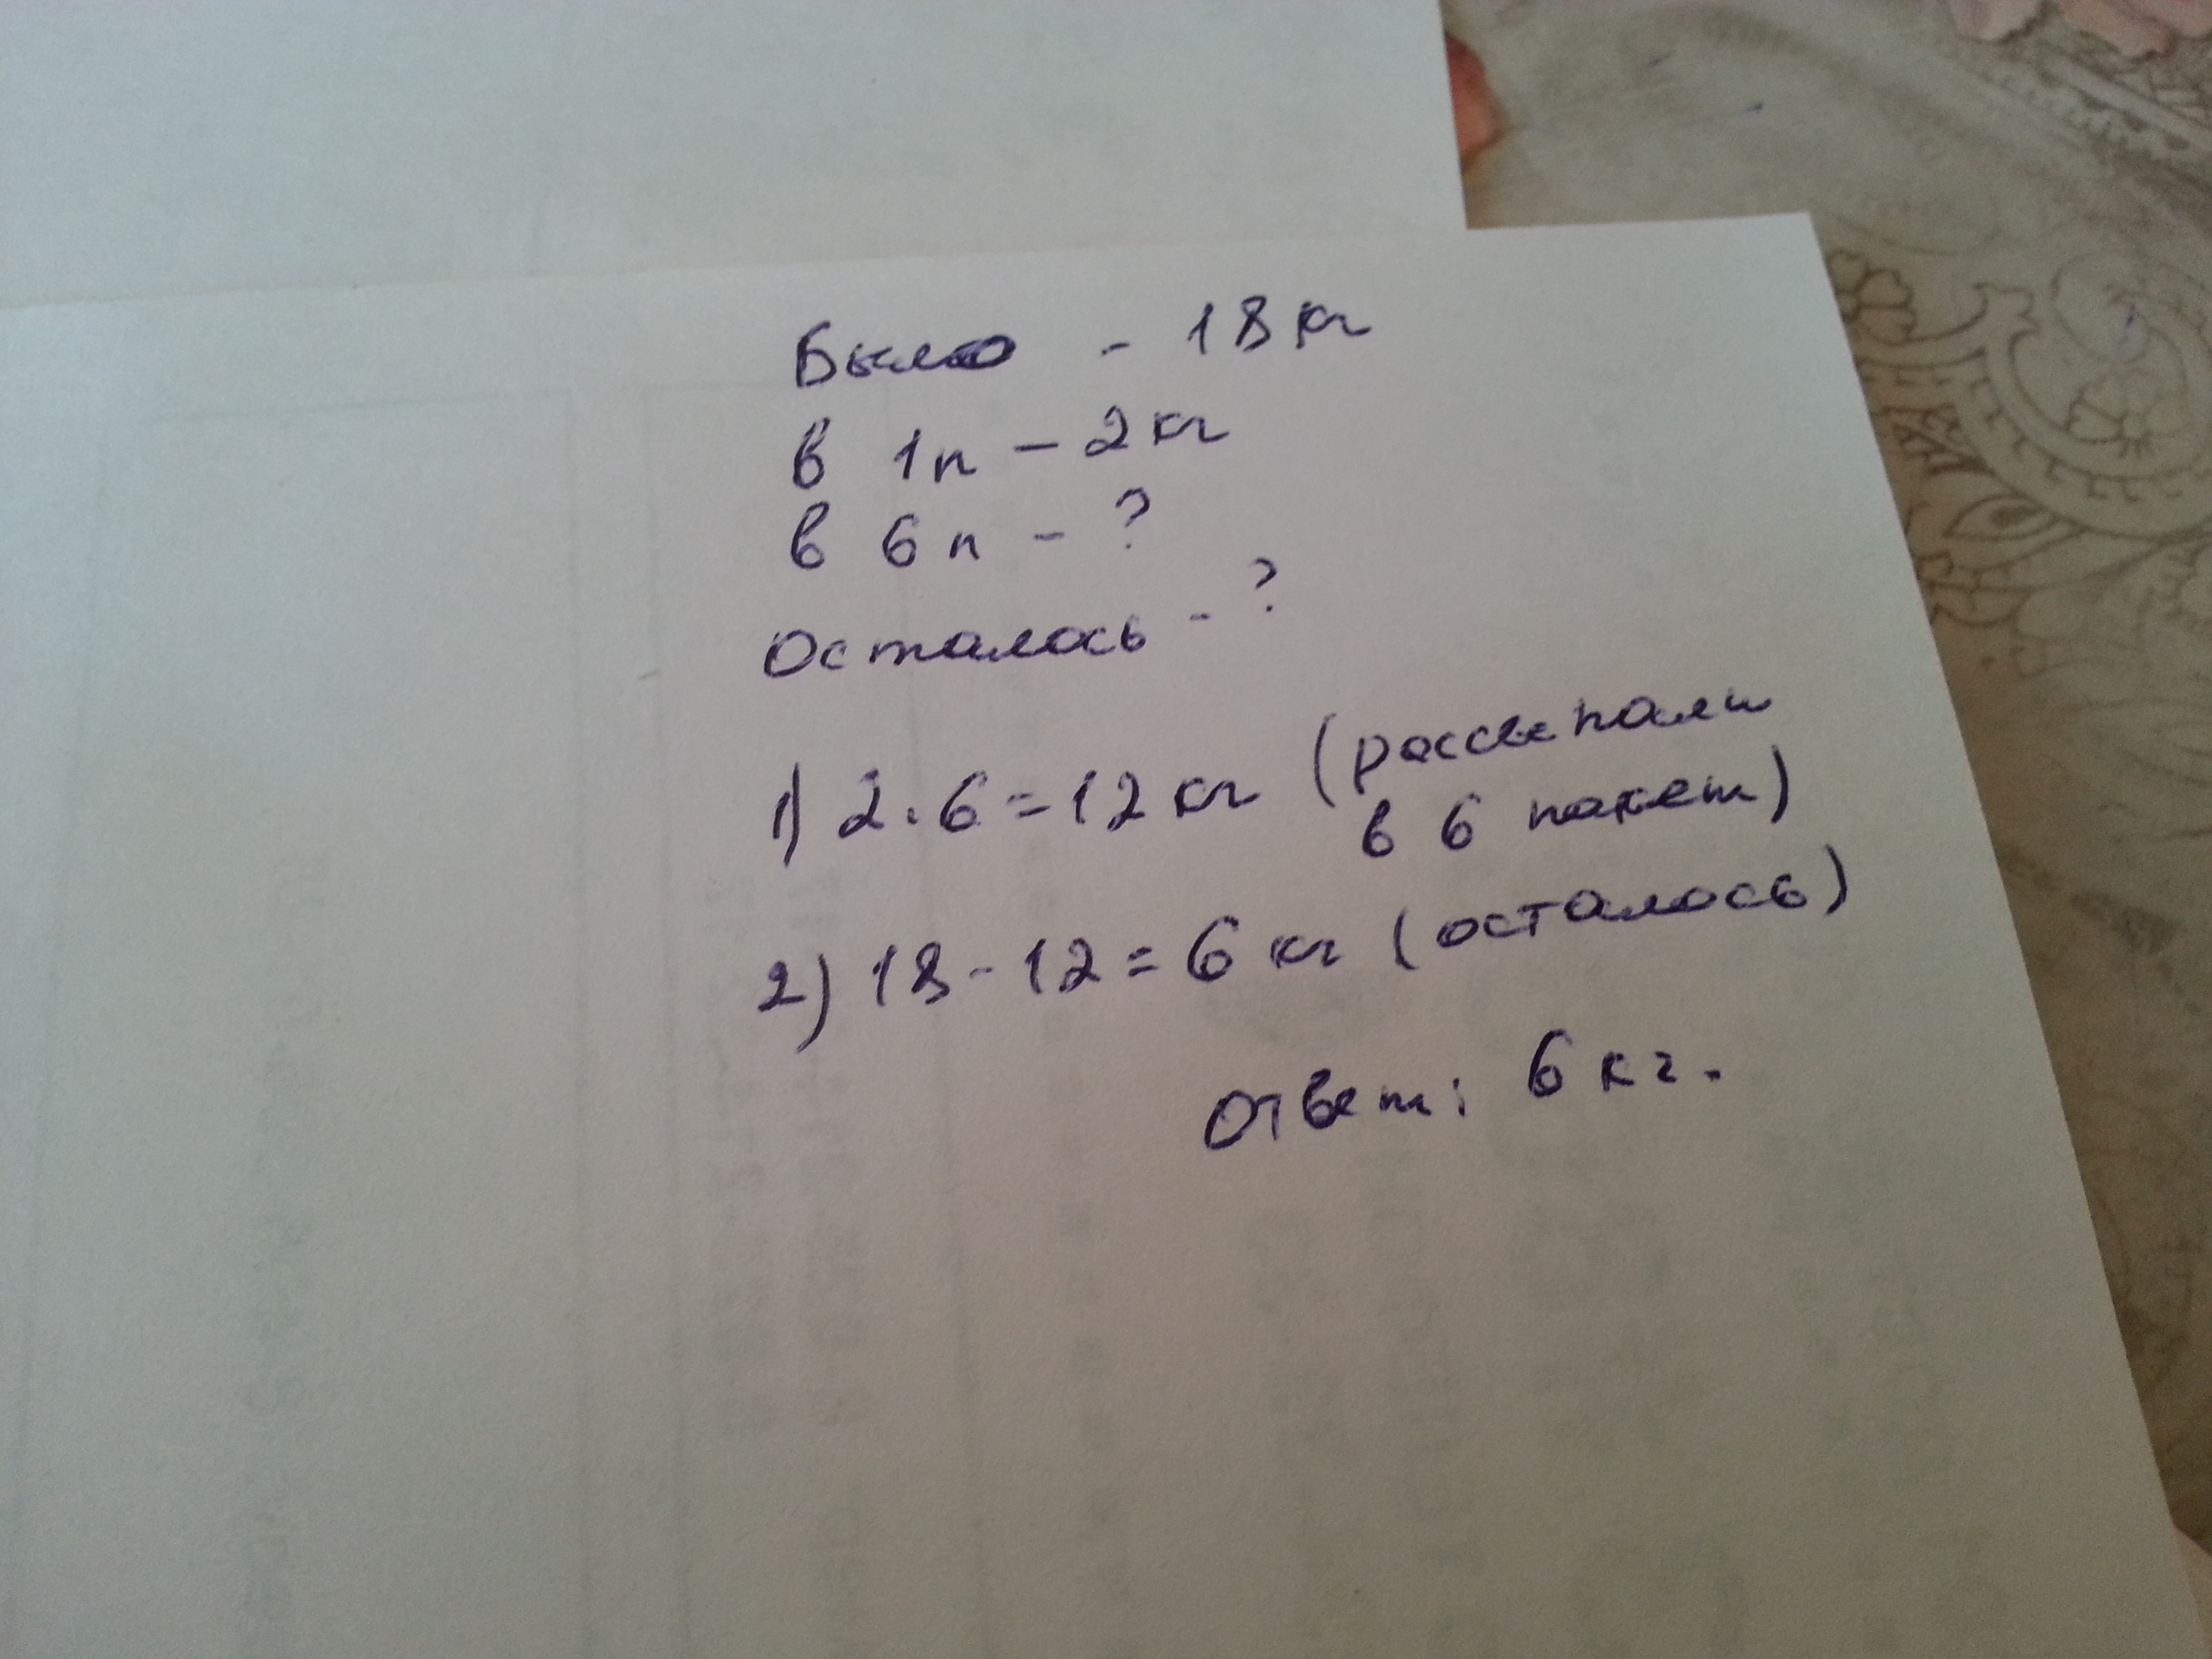 Было - 18 кг
в 1п - 2кг
в 6 п - ?
Осталось - ?
1) 2 . 6 = 12 кг (рассыпали
в 6 пакет)
2) 18 - 12 = 6 кг (осталось)
Ответ: 6 кг.